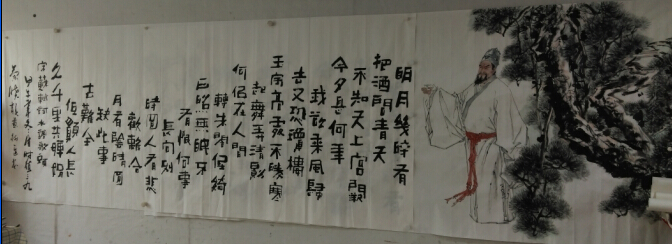 明月幾時有
把酒問青天
不知天上宮闕
今夕是何年
我欲乘風歸
去又恐瓊樓
玉宇高處不勝寒
起舞弄清影
何似在人間
轉朱閣低綺
戶照無眠
有恨何事
長向別
時圓人有悲
歡離合
月有陰晴圓
缺此事
古難全
但願人長
久千里共嬋娟
蘇軾 水調歌頭
甲午年